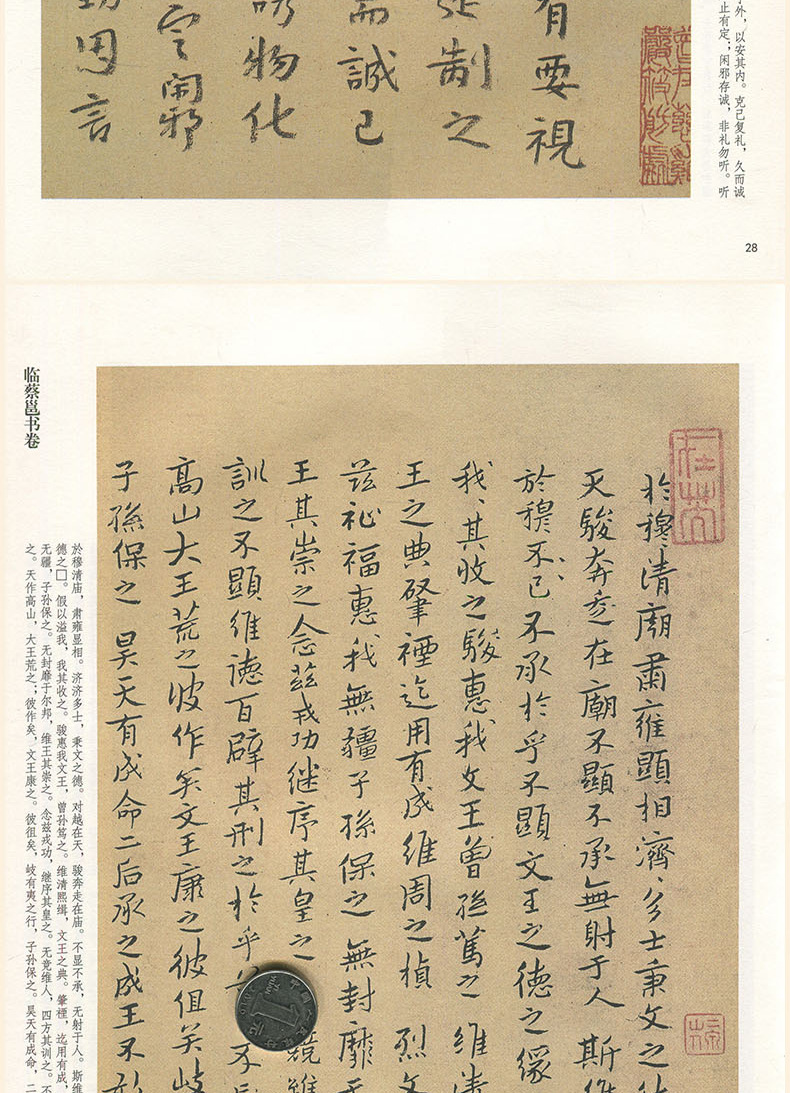 外，以安其内。克己复礼，久而诚
止有定；闲邪存诚，非礼勿听。听
有要視
制之
而誠已
物化
定閑邪
因言
28
於穆清廟肅雍顯相濟々多士秉文之
天駿奔走在廟不顯不承無射于人 斯維
於穆不已不承於乎不顯文王之德之緣
我、其收之駿惠我文王曾孫篤之 維清
王之典肇禋迄用有成維周之楨 烈文
兹祉福惠我無疆子孫保之 無封靡
王其崇之念兹戎功继序其皇之 競維
訓之不顯維德百辟其刑之於乎 不
高山大王荒之彼作矣文王康之彼徂矣岐
子孫保之 昊天有成命二后承之成王不
临蔡邕书卷
於穆清庙，肃雍显相。济济多士，秉文之德。对越在天，骏奔走在庙。不显不承，无射于人。斯维
德之□。假以溢我，我其收之。骏惠我文王，曾孙笃之。维清熙缉，文王之典。肇禋，迄用有成，
无疆，子孙保之。无封靡于尔邦，维王其崇之。念兹戎功，继序其皇之。无竞维人，四方其训之。不
之。天作高山，大王荒之；彼作矣，文王康之。彼徂矣，岐有夷之行，子孙保之。昊天有成命，二